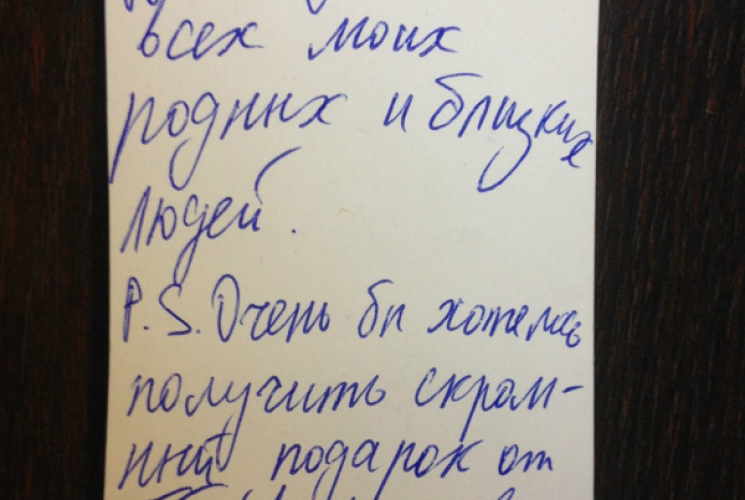 всех моих
родных и близких
людей.
P.S. Очень бы хотелось
получить скром-
ный подарок от